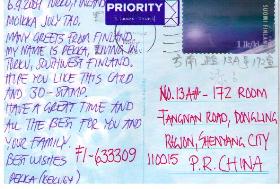 6.9.2009 TURKU, FINLAND
MOIKKA JOLY TAO,
MANY GREETS FROM FINLAND.
MY NAME IS PEKKA, LIVING IN
TURKU, SOUTHWEST FINLAND.
HOPE YOU LIKE THIS CARD
AND 3D-STAMP.
HAVE A GREAT TIME AND
ALL THE BEST FOR YOU AND
YOUR FAMILY.
BEST WISHES
PEKKA
FI-633309
PRIORITY
SUOMI FINLAND
1 lk/kl
NO.13A#- 172 ROOM
TANGNAN ROAD, DONGLING
REGION, SHENYANG CITY
110015
P.R. CHINA